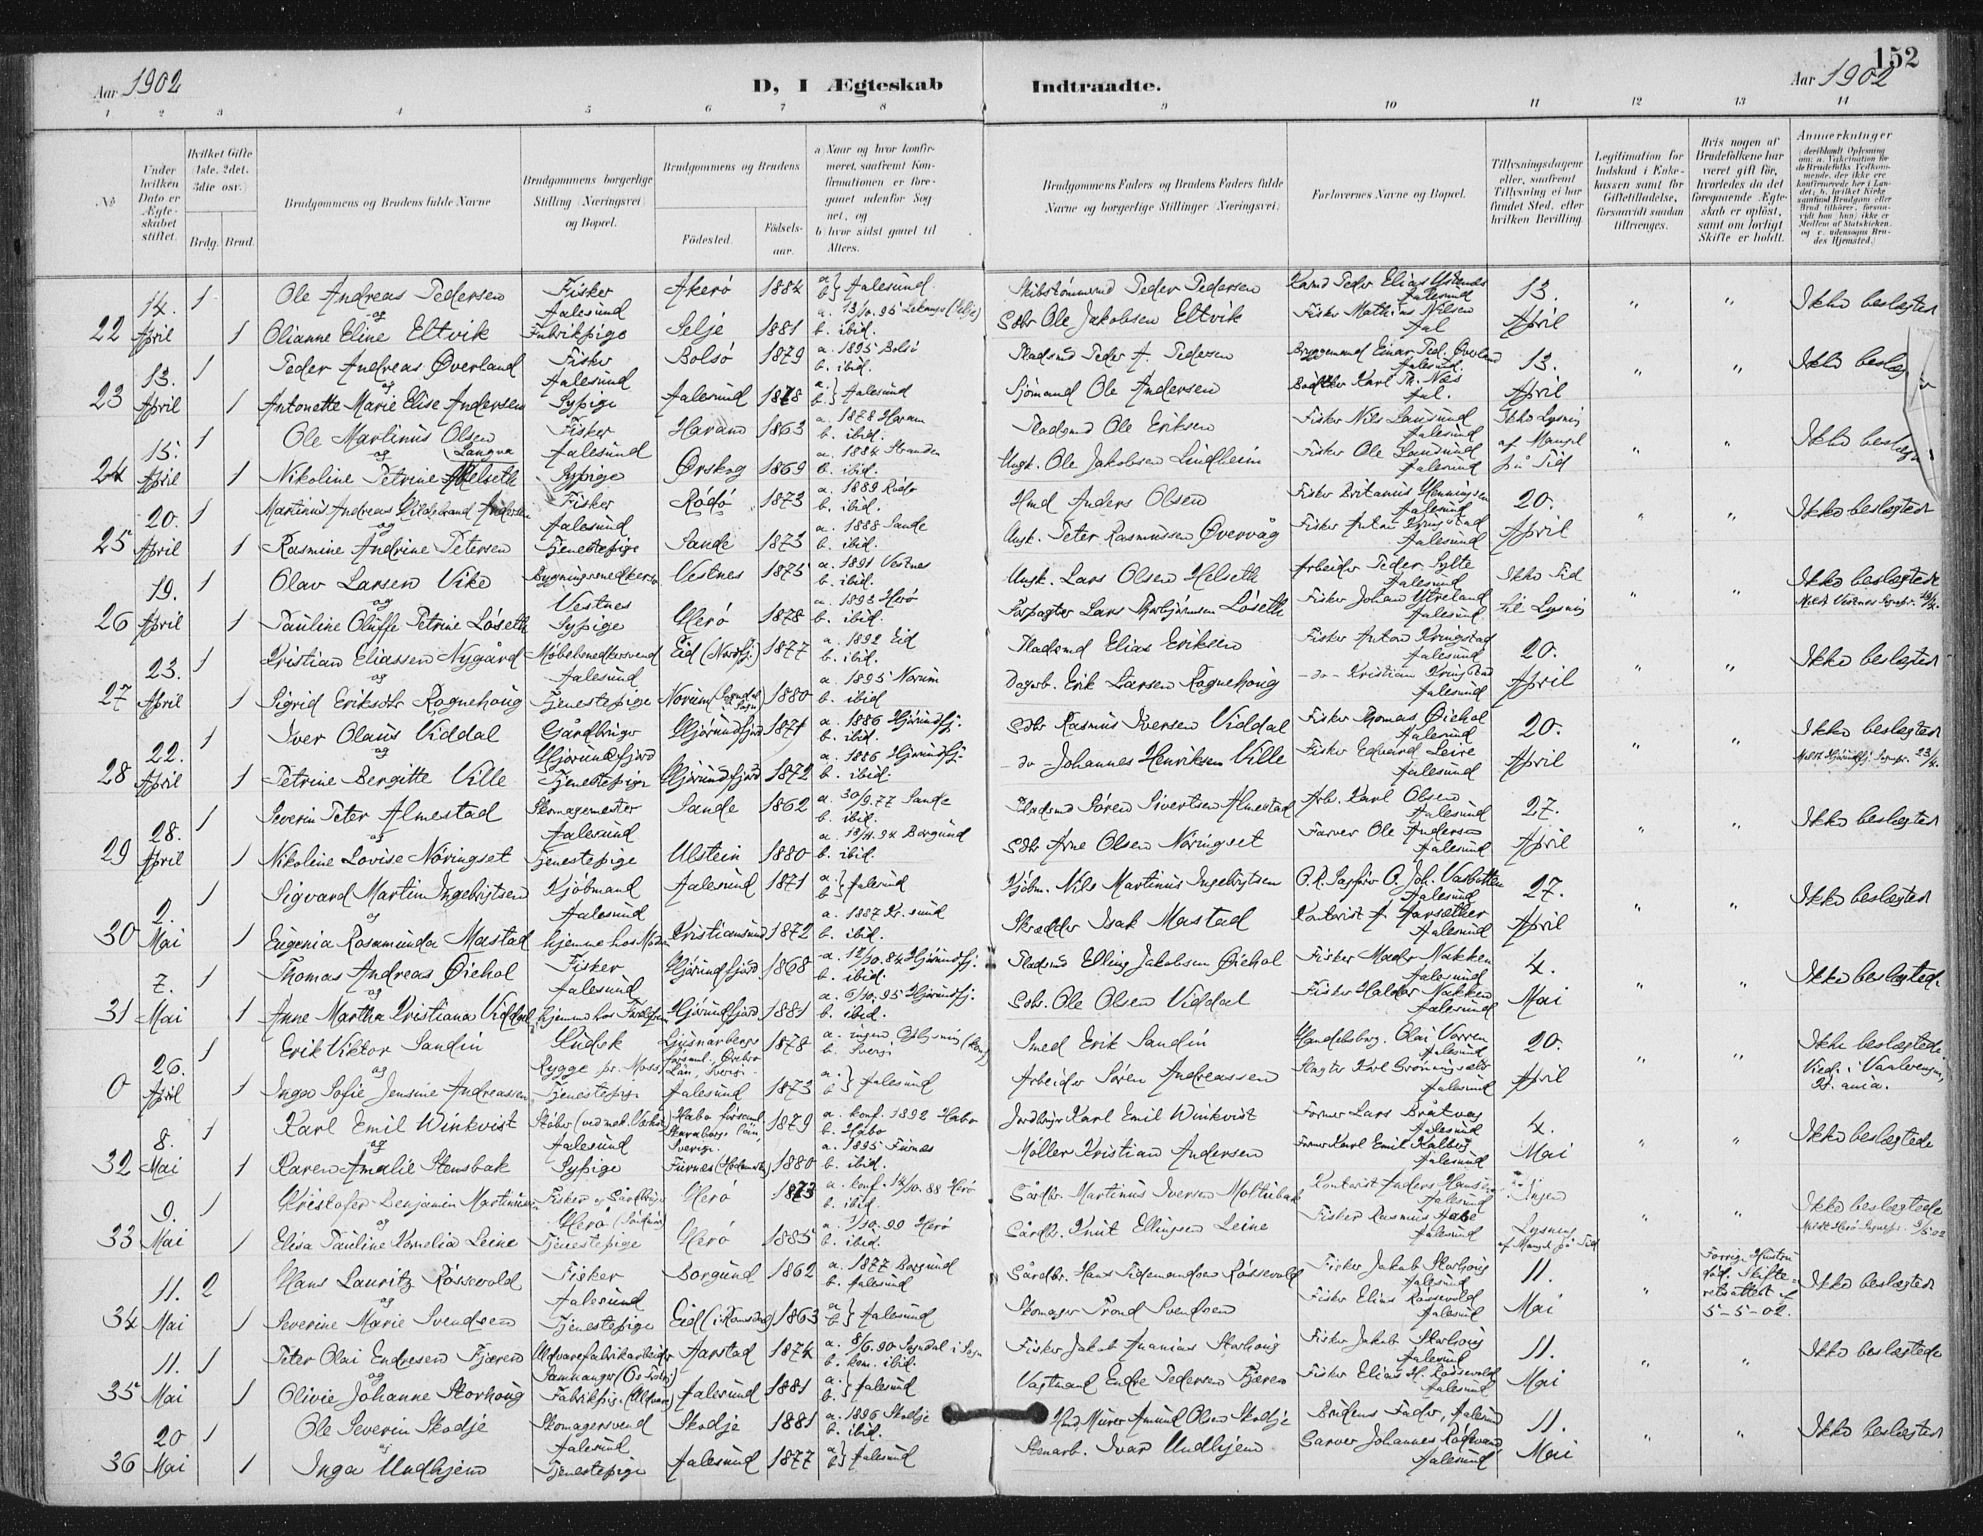 152
Aar 1902 D, I Ægteskab Indtraadte. Aar 1902
1 2 3 4 5 6 7 8 9 10 11 12 13 14
No
Under hvilken Dato er Ægteskabet stiftet.
Hvilket Gifte 1ste. 2det. 3die osv.)
Brdg. Brud.
Brudgommens og Brudens fulde Navne
Brudgommens borgerlige Stilling (Næringsvei) og Bopæl.
Brudgommens og Brudens
Fødested.
Fødsels-aar.
a) Naar og hvor konfirmeret, saafremt Konfirmationen er foregaaet udenfor Sognet, og
b) hvor sidst gaaet til Alters.
Brudgommens Faders og Brudens Faders fulde Navne og borgerlige Stillinger (Næringsvei)
Forlovernes Navne og Bopæl.
Tillysningsdagene eller, saafremt Tillysning ei har fundet Sted, efter hvilken Bevilling
Legitimation for Indskud i Enkekassen samt for Giftetilladelse, forsaavidt saadan tiltrænges.
Hvis nogen af Brudefolkene har været gift før, hvorledes da det foregaaende Ægteskab er opløst, samt om lovligt Skifte er holdt.
Anmærkninger
14. 1 Ole Andreas Pedersen Fisker Akerö 1884 a. } Aalesund Peder Pedersen 13. " " Ikke beslægtede
og Aalesund b.
22 April 1 Olianne Eline Eltvik Fabrikpige Selje 1881 b. ibid. Ole Jakobsen Eltvik Fisker Mathias Nilsen April
13. 1 Peder Andreas Øverland Fisker Bolsö 1879 a. 1895 Bolsö b. ibid. Pladsmd Peder A. Pedersen Aalesund 13. " "
og Aalesund
23 April 1 Antonette Marie Elise Andersen Sypige Aalesund 1878 a. } b. Aalesund Sjömand Ole Andersen Karl Th. Næs April
15. 1 Ole Martinus Olsen Fisker Haram 1863 a. 1878 Haram b. ibid. Pladsmd Ole Eriksen Fisker Nils Landsund Aalesund Ikke Lysning " "
og Langva Aalesund af Mangel
24 April 1 Nikoline Petrine Sypige Ørskog 1869 a. 1884 Stranden b. ibid. Ungk. Ole Jakobsen Lindheim Fisker Ole Landsund Aalesund på Tid
20. 1 Martinus Andreas Hildebrand Andersen Fisker Rödö 1873 a. 1889 Rödö b. ibid. Hmd Anders Olsen Fisker Britanus Henningsen Aalesund 20. " " Ikke beslægtede
og Aalesund
25 April 1 Rasmine Andrine Petersen Tjenestepige Sande 1873 a. 1888 Sande b. ibid. Ungk. Peter Rasmussen Øvervåg Fisker Anton Kringstad Aalesund April
19. 1 Olav Larsen Vike Bygningssnedker Vestnes 1875 a. 1891 Vestnes b. ibid. Ungk. Lars Olsen Helseth Arbeider Peder Sylte Aalesund Ikke Tid " " Ikke beslægtede
og Vestnes
26 April 1 Pauline Oluffe Petrine Löseth Sypige Herö 1878 a. 1893 Herö b. ibid. Forpagter Lars Löseth Fisker Johan Ytreland Aalesund til Lysning
23. 1 Kristian Eliassen Nygård Möbelsnedkersvend Eid (Nordfj.) 1877 a. 1892 Eid b. ibid. Pladsmd Elias Eriksen Fisker Anton Kringstad Aalesund 20. " " Ikke beslægtede
og Aalesund
27 April 1 Sigrid Eriksdtr Rognehaug Tjenestepige Norum 1880 a. 1895 Norum b. ibid Dagarb. Erik Larsen Rognehaug - do - Kristian Kringstad Aalesund April
22. 1 Iver Olaus Viddal Gårdbruger Hjörundfjord 1871 a. 1886 Hjörundfj. b. ibid. Rasmus Iversen Viddal Fisker Thomas Øiehol Aalesund 20. " " Ikke beslægtede
og Hjörundfjord
28 April 1 Petrine Bergitte Ville Tjenestepige Hjörundfjord 1872 a. 1886 Hjörundfj. b. ibid. - do - Johannes Henriksen Ville Fisker Edvard Leire Aalesund April
28. 1 Severin Peter Almestad Skomagermester Sande 1862 a. 30/9.77 Sande b. ibid. Pladsmd Sören Sivertsen Almestad Arb. Karl Olsen Aalesund 27. " " Ikke beslægtede
og Aalesund
29 April 1 Nikoline Lovise Nöringset Tjenestepige Ulstein 1880 Borgund b. ibid. Arne Olsen Nöringset Farver Ole Andersen Aalesund April
2. 1 Sigvard Martin Ingebrigtsen Kjöbmand Aalesund 1871 a. } b. Aalesund Kjöbm. Nils Martinus Ingebrigtsen Aalesund 27. " " Ikke beslægtede
og Aalesund
30 Mai 1 Eugenia Rosamunda Mastad hjemme hos Moder Kristiansund 1872 a. 1887 Kr.sund b. ibid. Skrædder Isak Mastad Kontorist A. Aarsether Aalesund April
7. 1 Thomas Andreas Øiehol Fisker Hjörundfjord 1868 a. 12/10.84 Hjörundfj. b. ibid. Pladsmd Elling Jakobsen Øiehol Fisker Mads Nakken Aalesund 4. " " Ikke beslægtede.
og Aalesund
31 Mai 1 Anne Martha Kristiana Viddal hjemme hos Forældrene Hjörundfjord 1881 a. 6/10.95 Hjörundfj. b. ibid. Ole Olsen Viddal Fisker Halder Nakken Aalesund Mai
26. 1 Erik Viktor Sandin Ljusnarbergs församl. Örebro Län, Sverige 1878 a. ingen b. Sverige Smed Erik Sandin Handelsbog. Olai Vorren Aalesund 20. " " Ikke beslægtede
og Rygge pr. Moss
0 April 1 Inga Sofie Jensine Andreassen Tjenestepige Aalesund 1873 a. } b. Aalesund Arbeider Sören Andreassen Slagter Karl Gröningsæter Aalesund April Viedi i Vaalerengen, Kr.ania.
8. 1 Karl Emil Winkvist Stöber (ved mek. Værksted) Habo församl. Skaraborgs Län, Sverige 1879 a. konf. 1892 Habo b. Habo Jordbruger Karl Emil Winkvist Former Lars Bråtvag Aalesund 4. " " Ikke beslægtede
og Aalesund
32 Mai 1 Karen Amalie Stensbak Sypige Furnes (Hedemarken) 1880 a. 1895 Furnes b. ibid. Möller Kristian Andersen Former Karl Emil Aalesund Mai
9. 1 Kristofer Benjamin Martinussen Fisker og Gårdbruger Herö 1873 a. konf. 14/10.88 Herö b. ibid Gårdbr. Martinus Iversen Moltubak Kontorist Anders Hansen Aalesund Ingen " " Ikke beslægtede
og Herö (Söndmör)
33 Mai 1 Elisa Pauline Kornelia Leine Tjenestepige Herö 1885 a. 1/10.99 Herö b. ibid. Gårdbr. Knut Ellingsen Leine Fisker Rasmus Aalesund Lysning af Mangel på Tid
11. 2 Hans Lauritz Rössevold Fisker Borgund 1862 a. 1877 Borgund b. Aalesund Gårdbr. Hans Tidemandsen Rössevold Fisker Jakob Storhoug Aalesund 11. " Forrige Hustru död. Skifteretsattest af 5-5-02. Ikke beslægtede
og Aalesund
34 Mai 1 Severine Marie Svendsen Tjenestepige Eid (i Romsdal) 1863 a. } b. Aalesund Skomager Trond Svendsen Fisker Elias Rössevold Aalesund Mai
11. 1 Peter Olai Endresen Fjæren Uldvarefabrikarbeider Aarstad 1874 a. 8/6.90 Sogndal i Sogn b. kom. ibid. Fisker Jakob Ananias Storhoug Fisker Jakob Storhoug Aalesund 11. " " Ikke beslægtede
og Samnanger
35 Mai 1 Olivie Johanne Storhoug Fabrikpig. (Uldvare) Aalesund 1881 a. } b. Aalesund Vagtmand Endre Pedersen Fjæren Fisker Elias H. Rössevold Aalesund Mai
20 1 Ole Severin Skodje Skomagersvend Skodje 1881 a. 1896 Skodje b. ibid. Hmd, Murer Amund Olsen Skodje Brudens Fader, Aalesund 11. " " Ikke beslægtede
og Aalesund
36 Mai 1 Inga Undhjem Tjenestepige Aalesund 1877 a. } b. Aalesund Stenarb. Ivar Undhjem Garver Johannes Rödsand Aalesund Mai